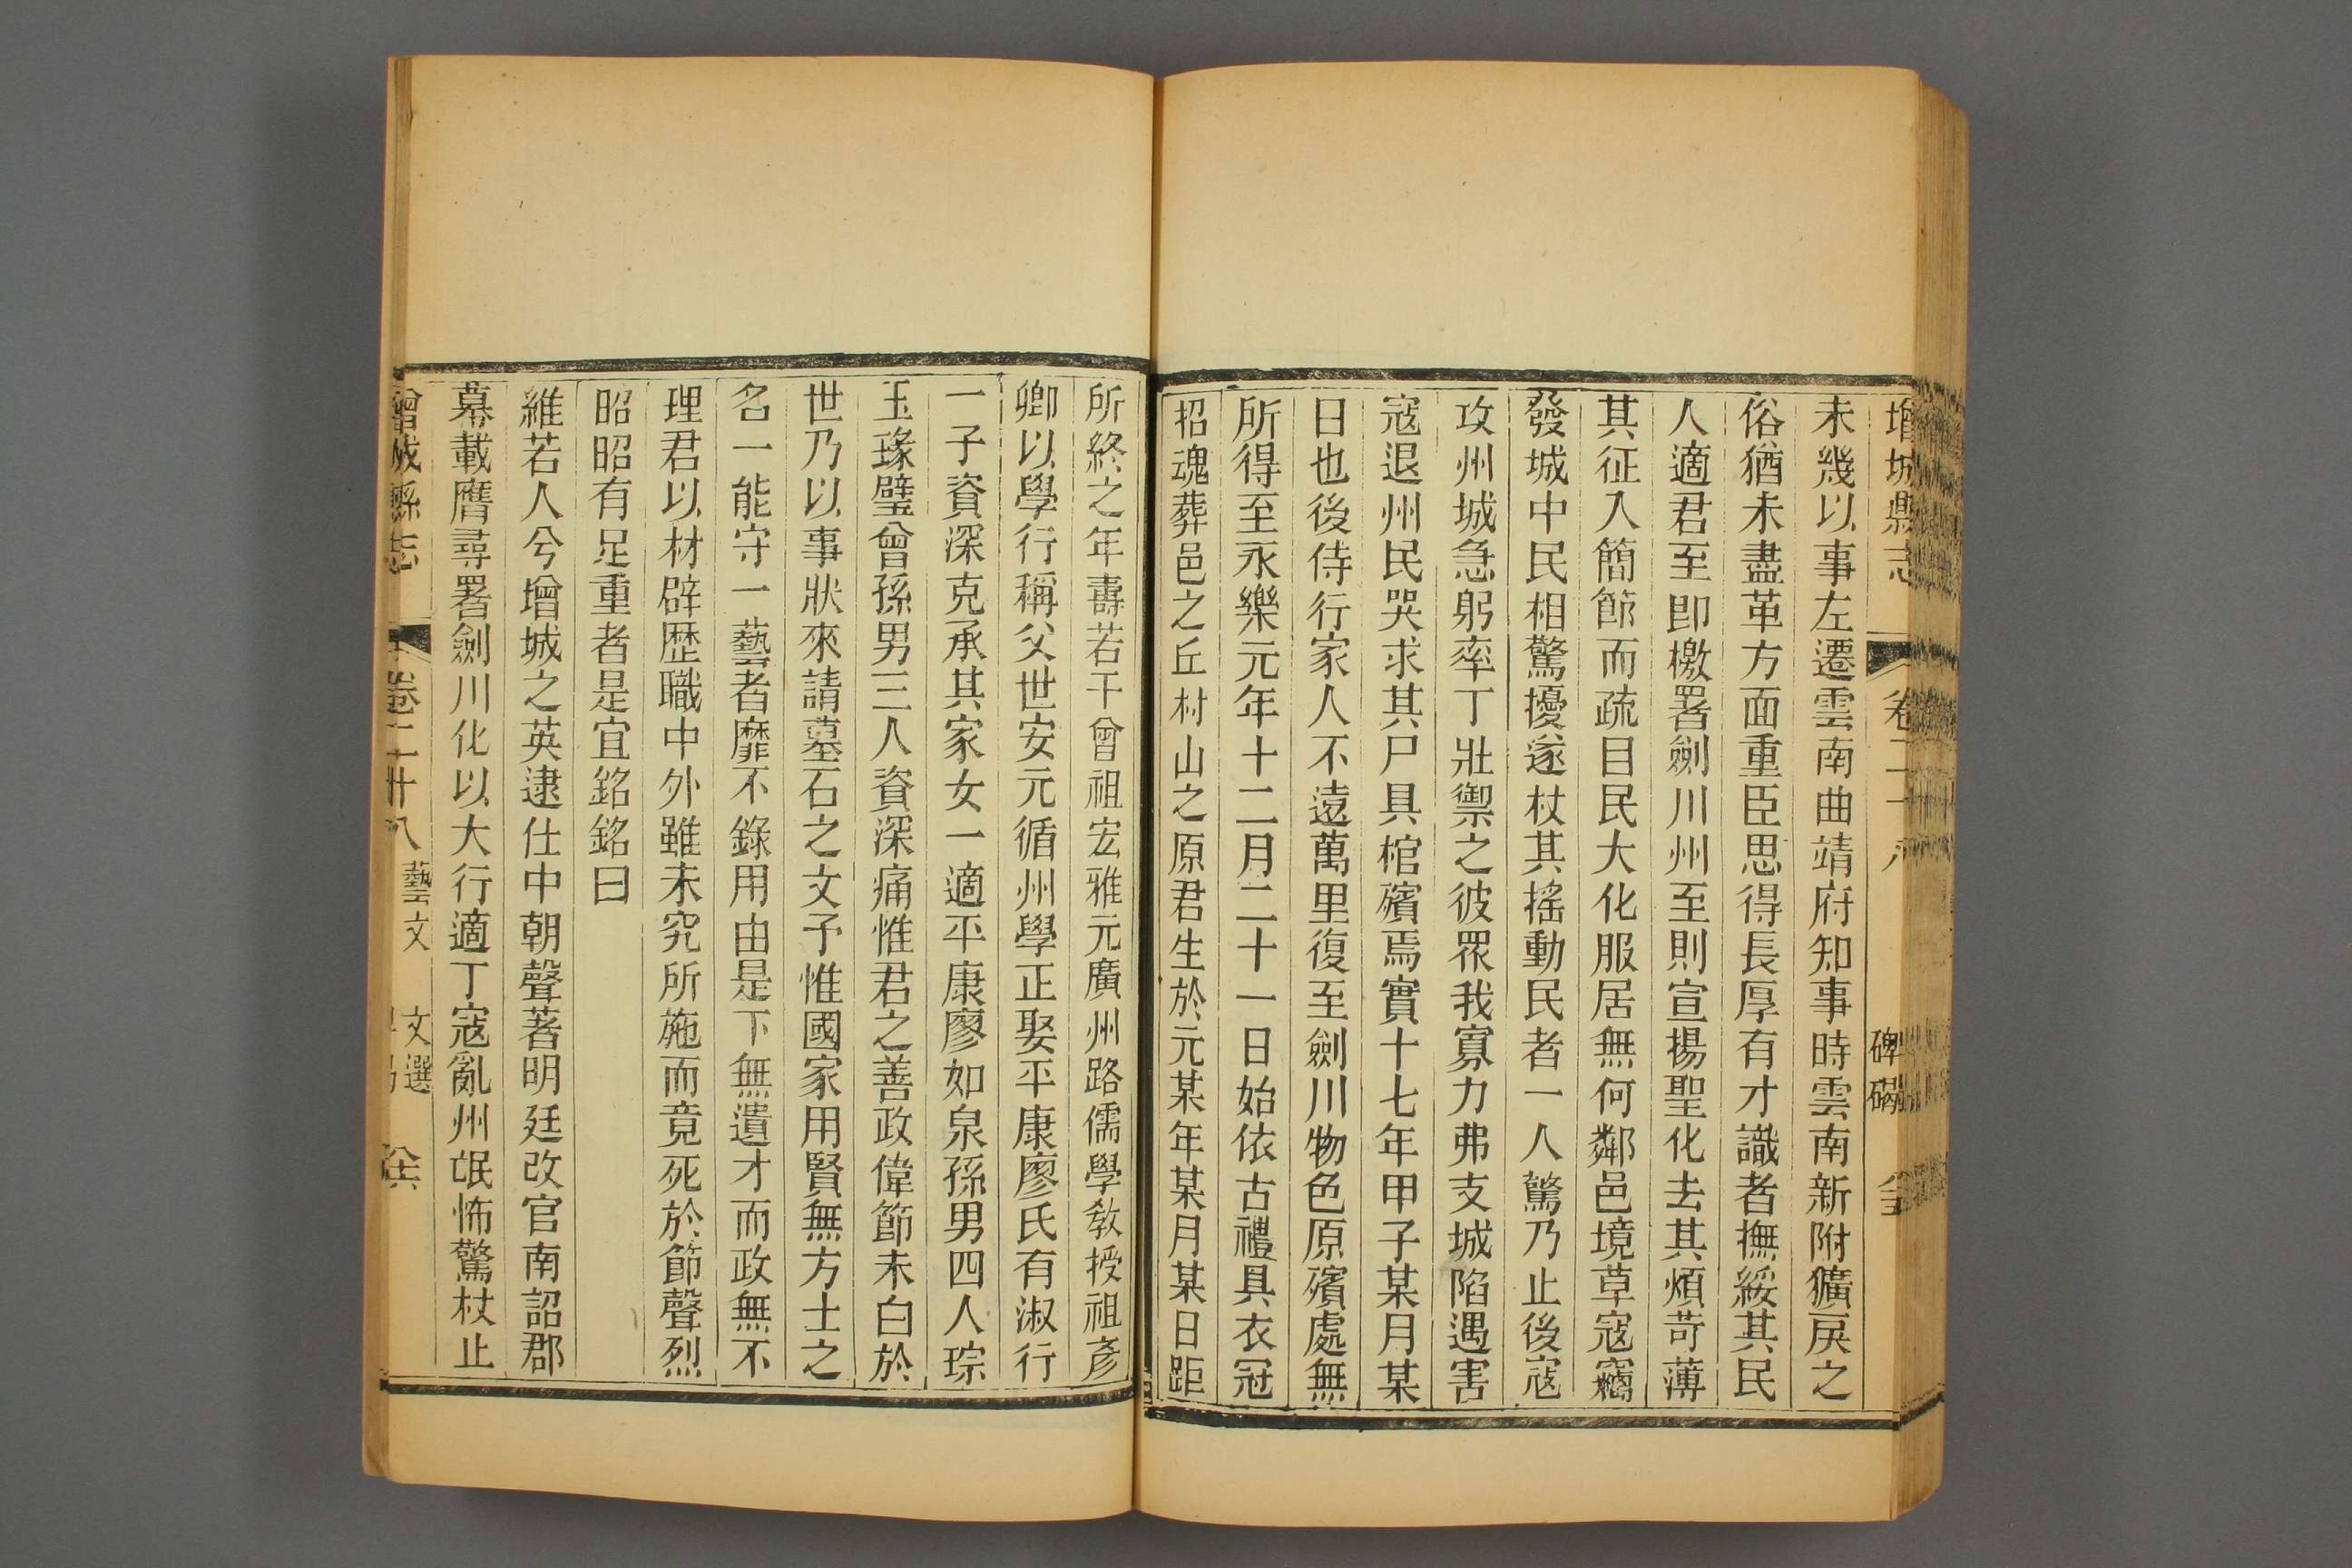 增城縣志 卷二十八 碑碣
未幾以事左遷雲南曲靖府知事時雲南新附獷戾之
俗猶未盡革方面重臣思得長厚有才識者撫綏其民
人適君至即檄署劍川州至則宣揚聖化去其煩苛薄
其征入簡節而疏目民大化服居無何鄰邑境草寇竊
發城中民相驚擾遂杖其搖動民者一人驚乃止後寇
攻州城急躬率丁壯禦之彼眾我寡力弗支城陷遇害
寇退州民哭求其尸具棺殯焉實十七年甲子某月某
日也後侍行家人不遠萬里復至劍川物色原殯處無
所得至永樂元年十二月二十一日始依古禮具衣冠
招魂葬邑之丘村山之原君生於元某年某月某日距
所終之年壽若干曾祖宏雅元廣州路儒學教授祖彥
卿以學行稱父世安元循州學正娶平康廖氏有淑行
一子資深克承其家女一適平康廖如泉孫男四人琮
玉瑑璧曾孫男三人資深痛惟君之善政偉節未白於
世乃以事狀來請墓石之文予惟國家用賢無方士之
名一能守一藝者靡不錄用由是下無遺才而政無不
理君以材辟歷職中外雖未究所施而竟死於節聲烈
昭昭有足重者是宜銘銘曰
維若人兮增城之英逮仕中朝聲著明廷改官南詔郡
幕載膺尋署劍川化以大行適丁寇亂州氓怖驚杖止
增城縣志 卷二十八 藝文 文選